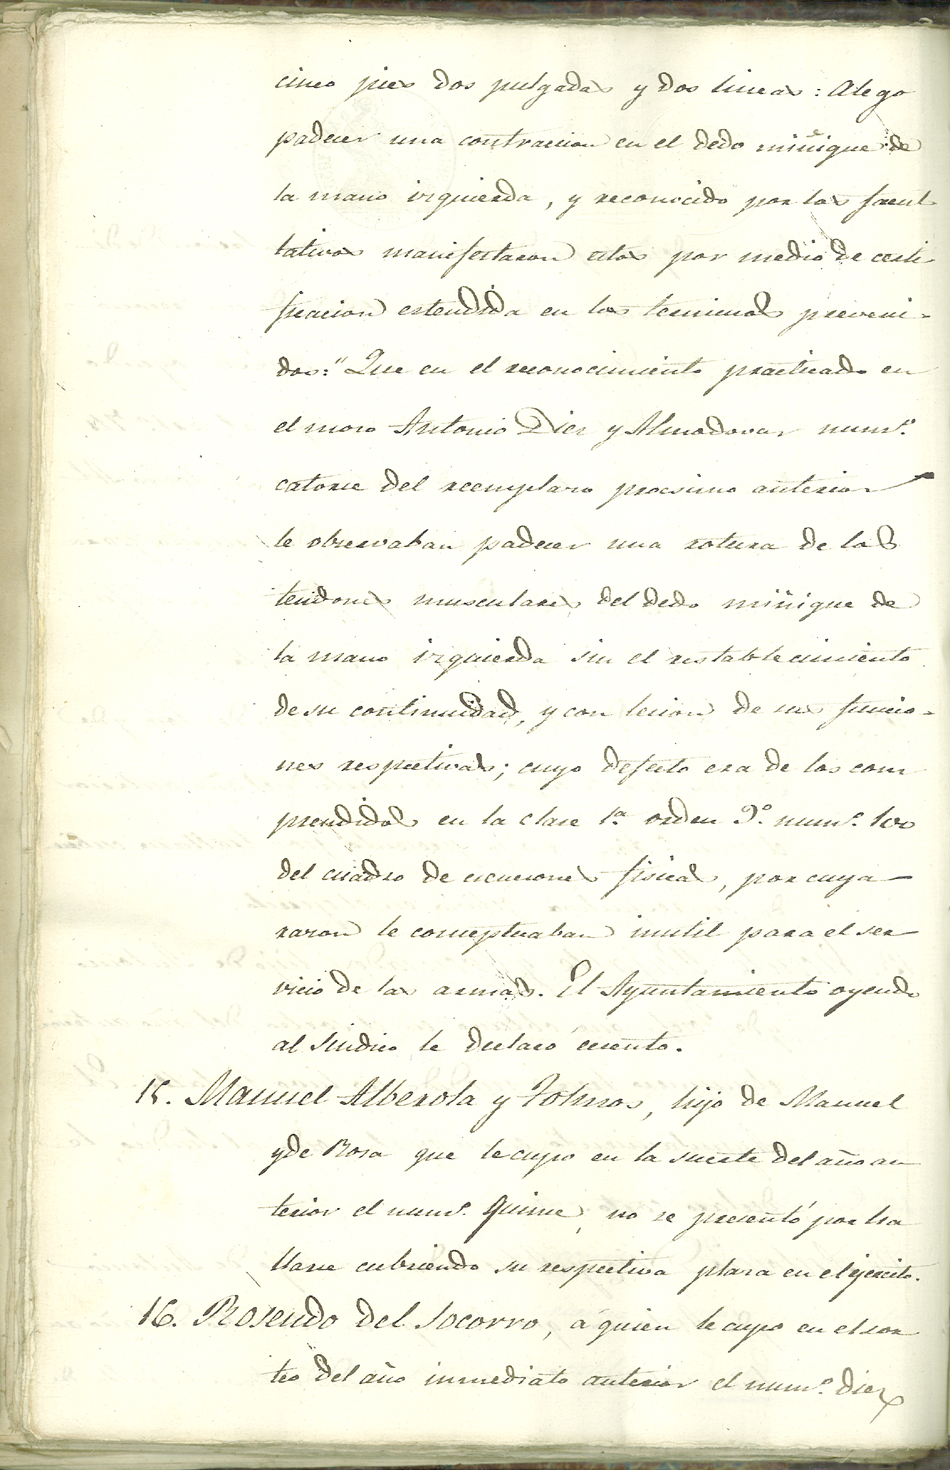 cinco pies dos pulgadas y dos lineas: Alego
padecer una contraccion en el dedo miñique de
la mano izquierda, y reconocido por los facul
tativos manifestaron estos por medio de certi
ficacion estendida en los terminos preveni-
dos: "Que en el reconocimiento practicado en
el mozo Antonio Diez y Almodovar num.º
catorce del reemplazo procsimo anterior
le observaban padecer una rotura de los
tendones musculares del dedo miñique de
la mano izquierda sin el restablecimiento
de su continuidad, y con lecion de sus funcio-
nes respectivas; cuyo defecto era de los com
prendidos en la clase 1.ª orden 9.º num.º 100
del cuadro de escenciones fisicas, por cuya
razon le conceptuaban inutil para el ser
vicio de las armas. El Ayuntamiento oyendo
al Sindico le declaró escento.
15. Manuel Alberola y, hijo de Manuel
y de Rosa que le cupo en la suerte del año an
terior el num.º Quince, no se presentó por ha
llarse cubriendo su respectiva plaza en el ejercito.
16. Rosendo del Socorro, á quien le cupo en el sor
teo del año inmediato anterior el num.º diez